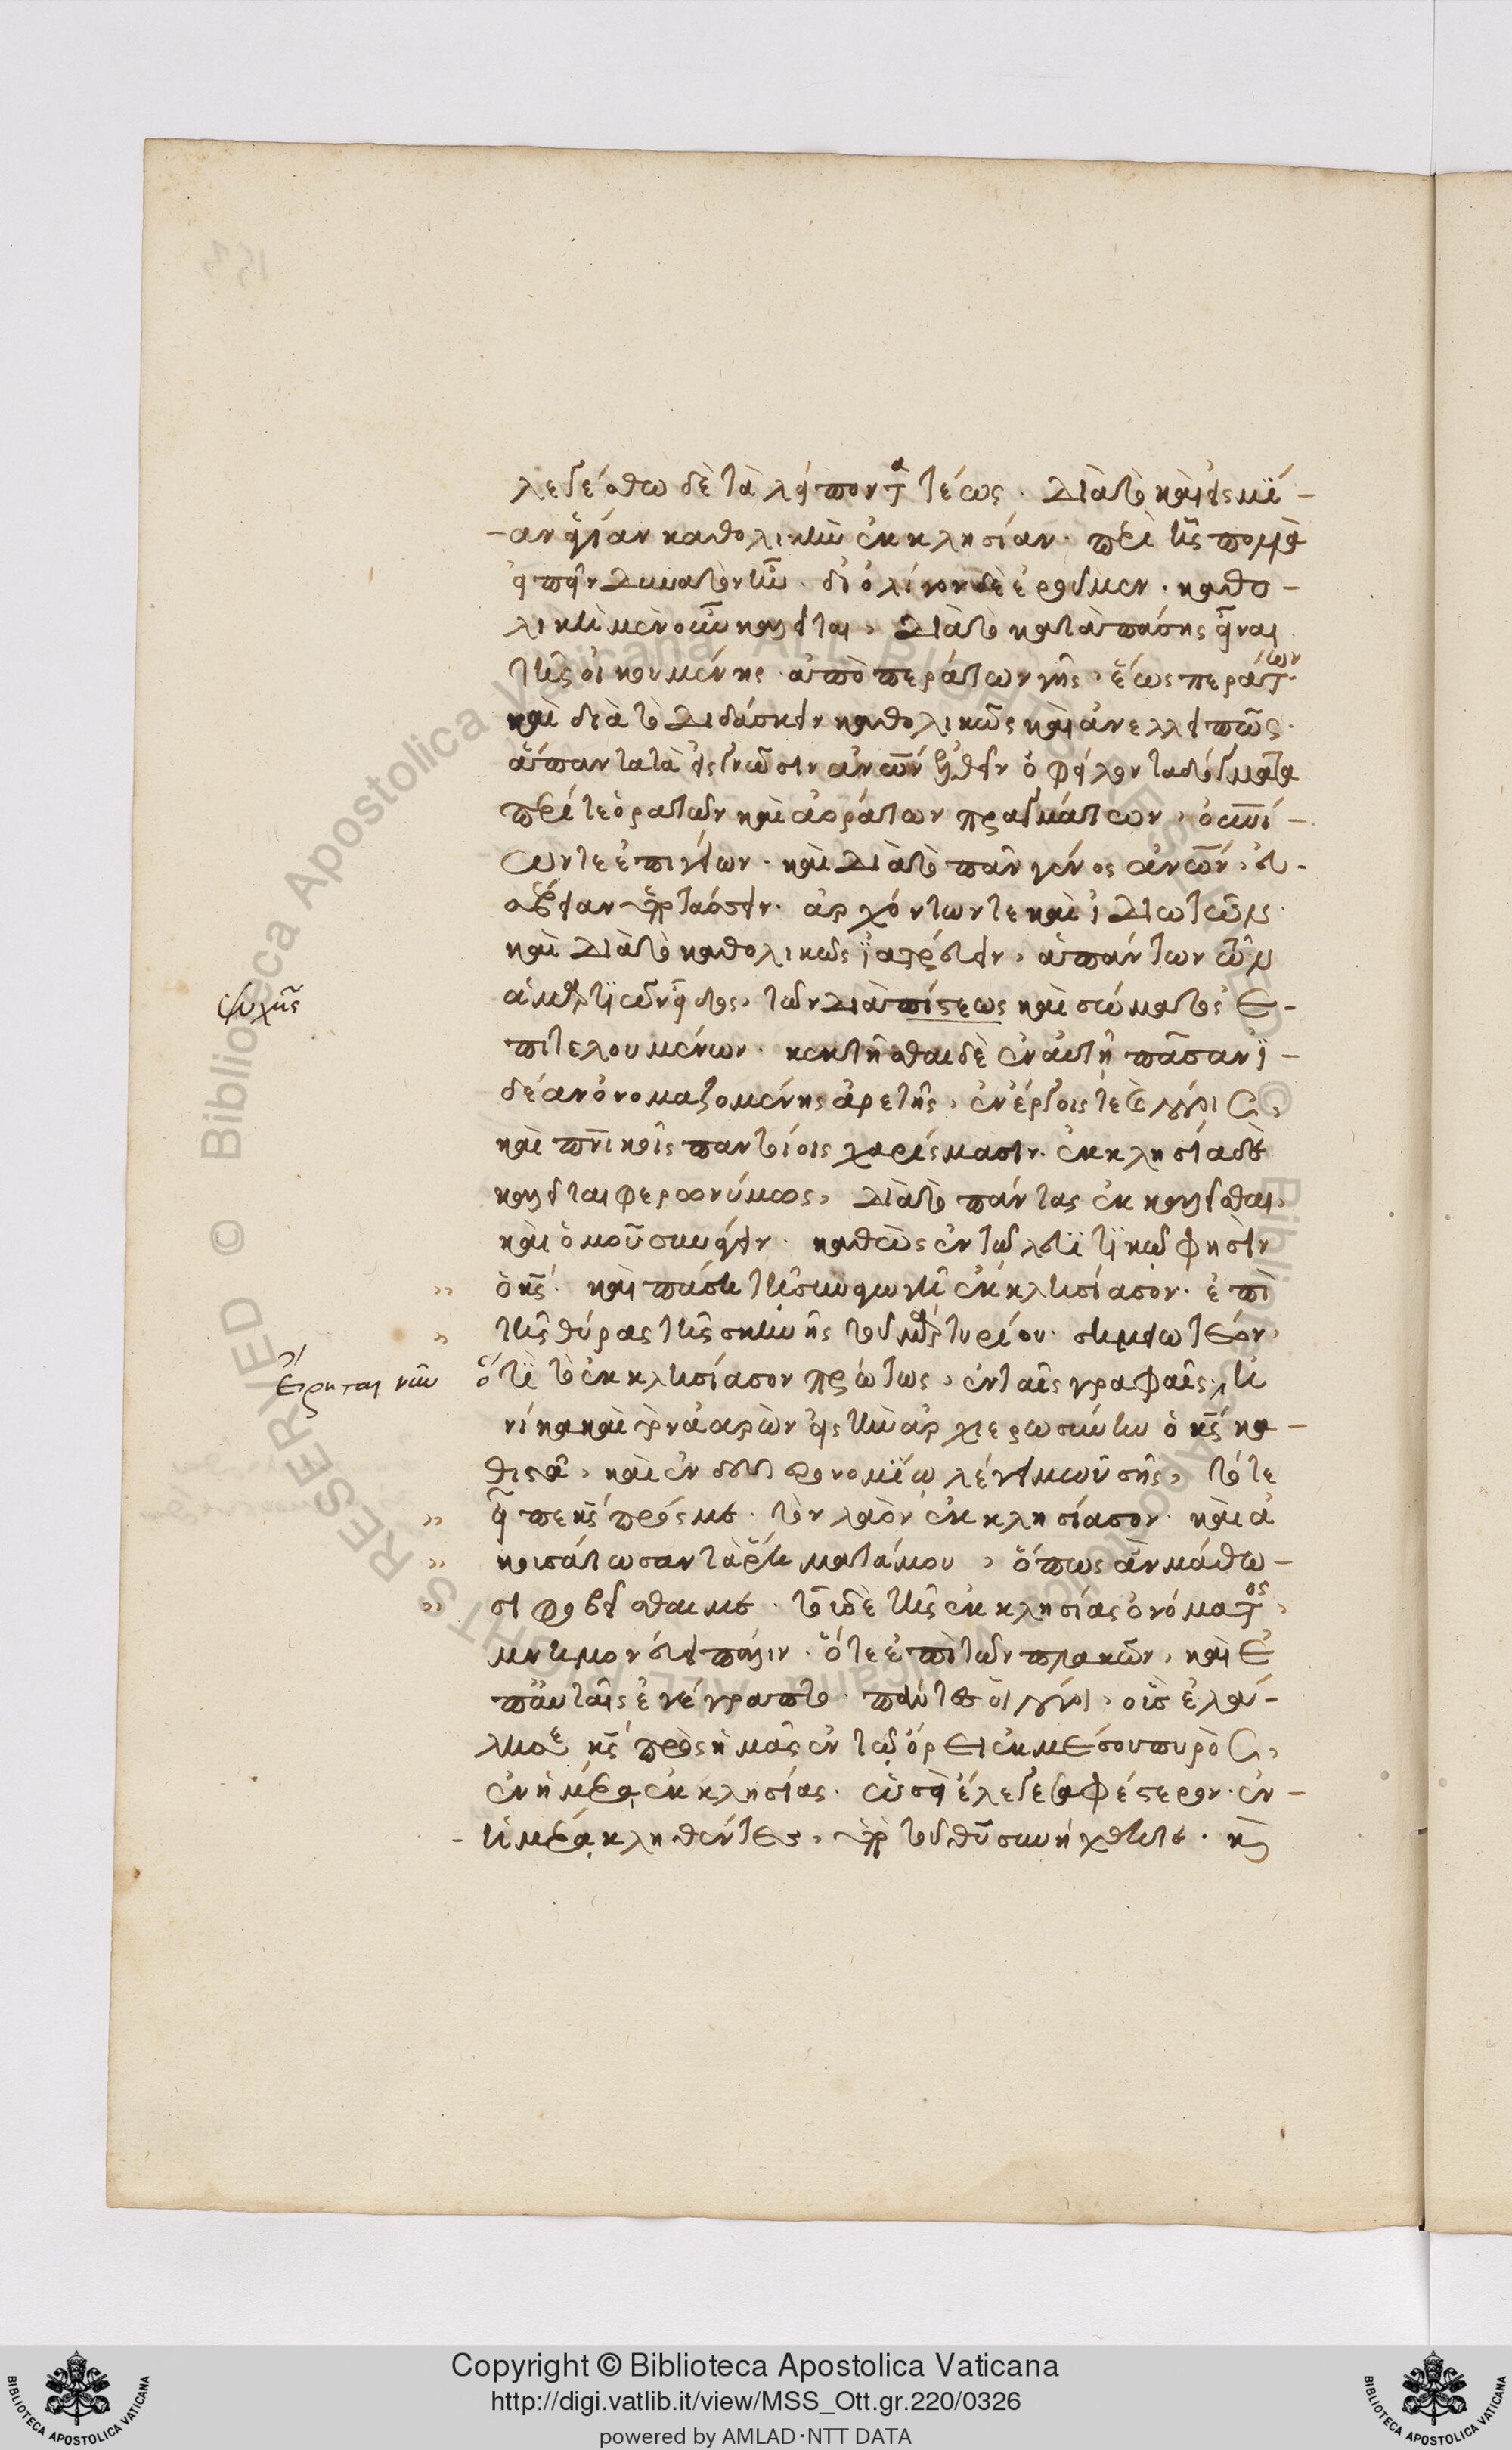 λεγέσθω δὲ τὰ λείποντα τέως. διὰ τὸ καὶ εἰς μΐ-
-αν ἁγίαν καθολικὴν ἐκκλησίαν. περὶ ἧς πολλὰ
εἰπεῖν δυνατὸν ἦν. δι ὀλίγον δὲ ἐροῦμεν. καθο-
λικὴ μὲν οὖν καλεῖται, διὰ τὸ κατὰ πάσης εἶναι
τῆς οἰκουμένης. ἀπὸ περάτων γῆς, ἕως περάτων.
καὶ διὰ τὸ διδάσκειν καθολικῶς καὶ ἀνελλειπῶς.
ἅπαντα τὰ εἰς γνῶσιν ἀνων ἐλθεῖν ὀφείλοντα δόγματα
περί τε ὁρατῶν καὶ ἀοράτων πραγμάτων, οὐνί-
ων τε ἐπιγείων. καὶ διὰ τὸ πᾶν γένος ἀνων, εὐ-
σέβειαν ὑποτάσσειν. ἀρχόντων τε καὶ ἰδιωτῶν.
καὶ διὰ τὸ καθολικῶς ἰατρεύειν, ἁπάντων τῶν
ἁμαρτιῶν εἶδος, τῶν διὰ πίστεως καὶ σώματος ἐ-
ψυχῆς
πιτελουμένων. κεκτῆσθαι δὲ ἐν αὐτῇ πᾶσαν ἰ-
δέαν ὀνομαζομένης ἀρετῆς, ἐν ἔργοις τε καὶ λόγοις,
καὶ πνικοῖς παντίοις χαρίσμασιν. ἐκκλησία δὲ
καλεῖται φερωνύμως, διὰ τὸ πάντας ἐκκαλεῖσθαι,
καὶ ὁμοῦ συνάγειν. καθὼς ἐν τῷ λευϊτικῷ φησὶν
ὁ κς. καὶ πάσῃ τῇ συναγωγῇ ἐκκλησίασον. ἐπὶ
τῆς θύρας τῆς σκηνῆς τοῦ μαρτυρίου. σημειωτέον,
εἴρηται νῦν
ὅτι τὸ ἐκκλησίασον πρώτως, ἐν ταῖς γραφαῖς, ἡ
νίκα καὶ τὸν ἀαρὼν εἰς τὴν ἀρχιερωσύνην ὁ κς κα-
θιστᾶ, καὶ ἐν δευτερονομίῳ λέγει μωϋσῆς, τότε
εἶπε κς πρός με. τὸν λαὸν ἐκκλησίασον. καὶ ἀ
κουσάτωσαν τὰ ῥήματά μου, ὅπως ἂν μάθω-
σι φοβεῖσθαι με. τοῦ δὲ τῆς ἐκκλησίας ὀνόματος,
μνημονεύει πάλιν. ὅτε ἐπὶ τῶν πλακῶν, καὶ ἐ
π αὐταῖς ἐγέγραπτο. πάντες οἱ λόγοι, οὓς ἐλάλησε
κς πρὸς ἡμᾶς ἐν τῷ ὄρει ἐκ μέσου πυρὸς,
ἐν ἡμέρᾳ ἐκκλησίας. ὡσεὶ ἔλεγε σαφέστερον. ἐν-
-ἡμέρᾳ κληθέντες, ὑπὸ τοῦ θῦ συνήχθητε. καὶ